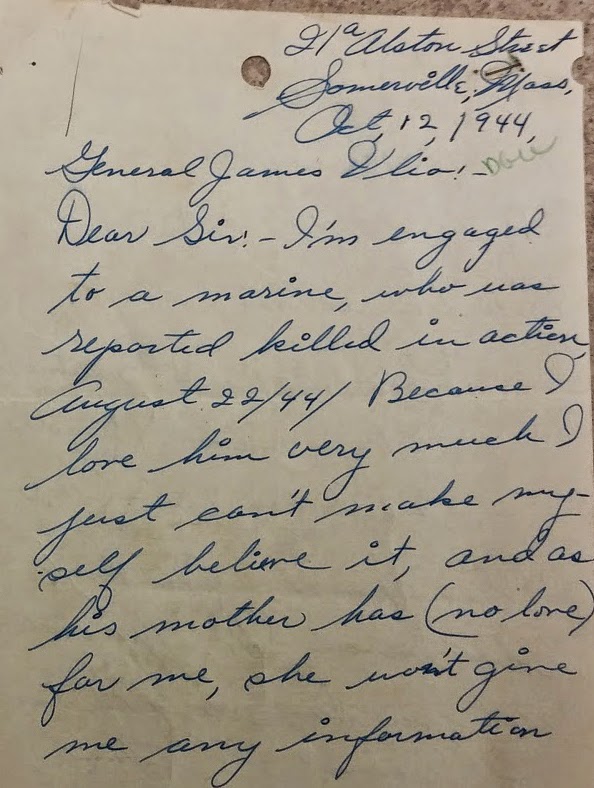 21a Alston Street
Somerville, Mass,
Oct, 12, 1944,
General James Ulio! -
Dear Sir: - I'm engaged
to a marine, who was
reported killed in action,
August 22/44/ Because I
love him very much I
just can't make my-
self believe it, and as
his mother has (no love)
for me, she won't give
me any information